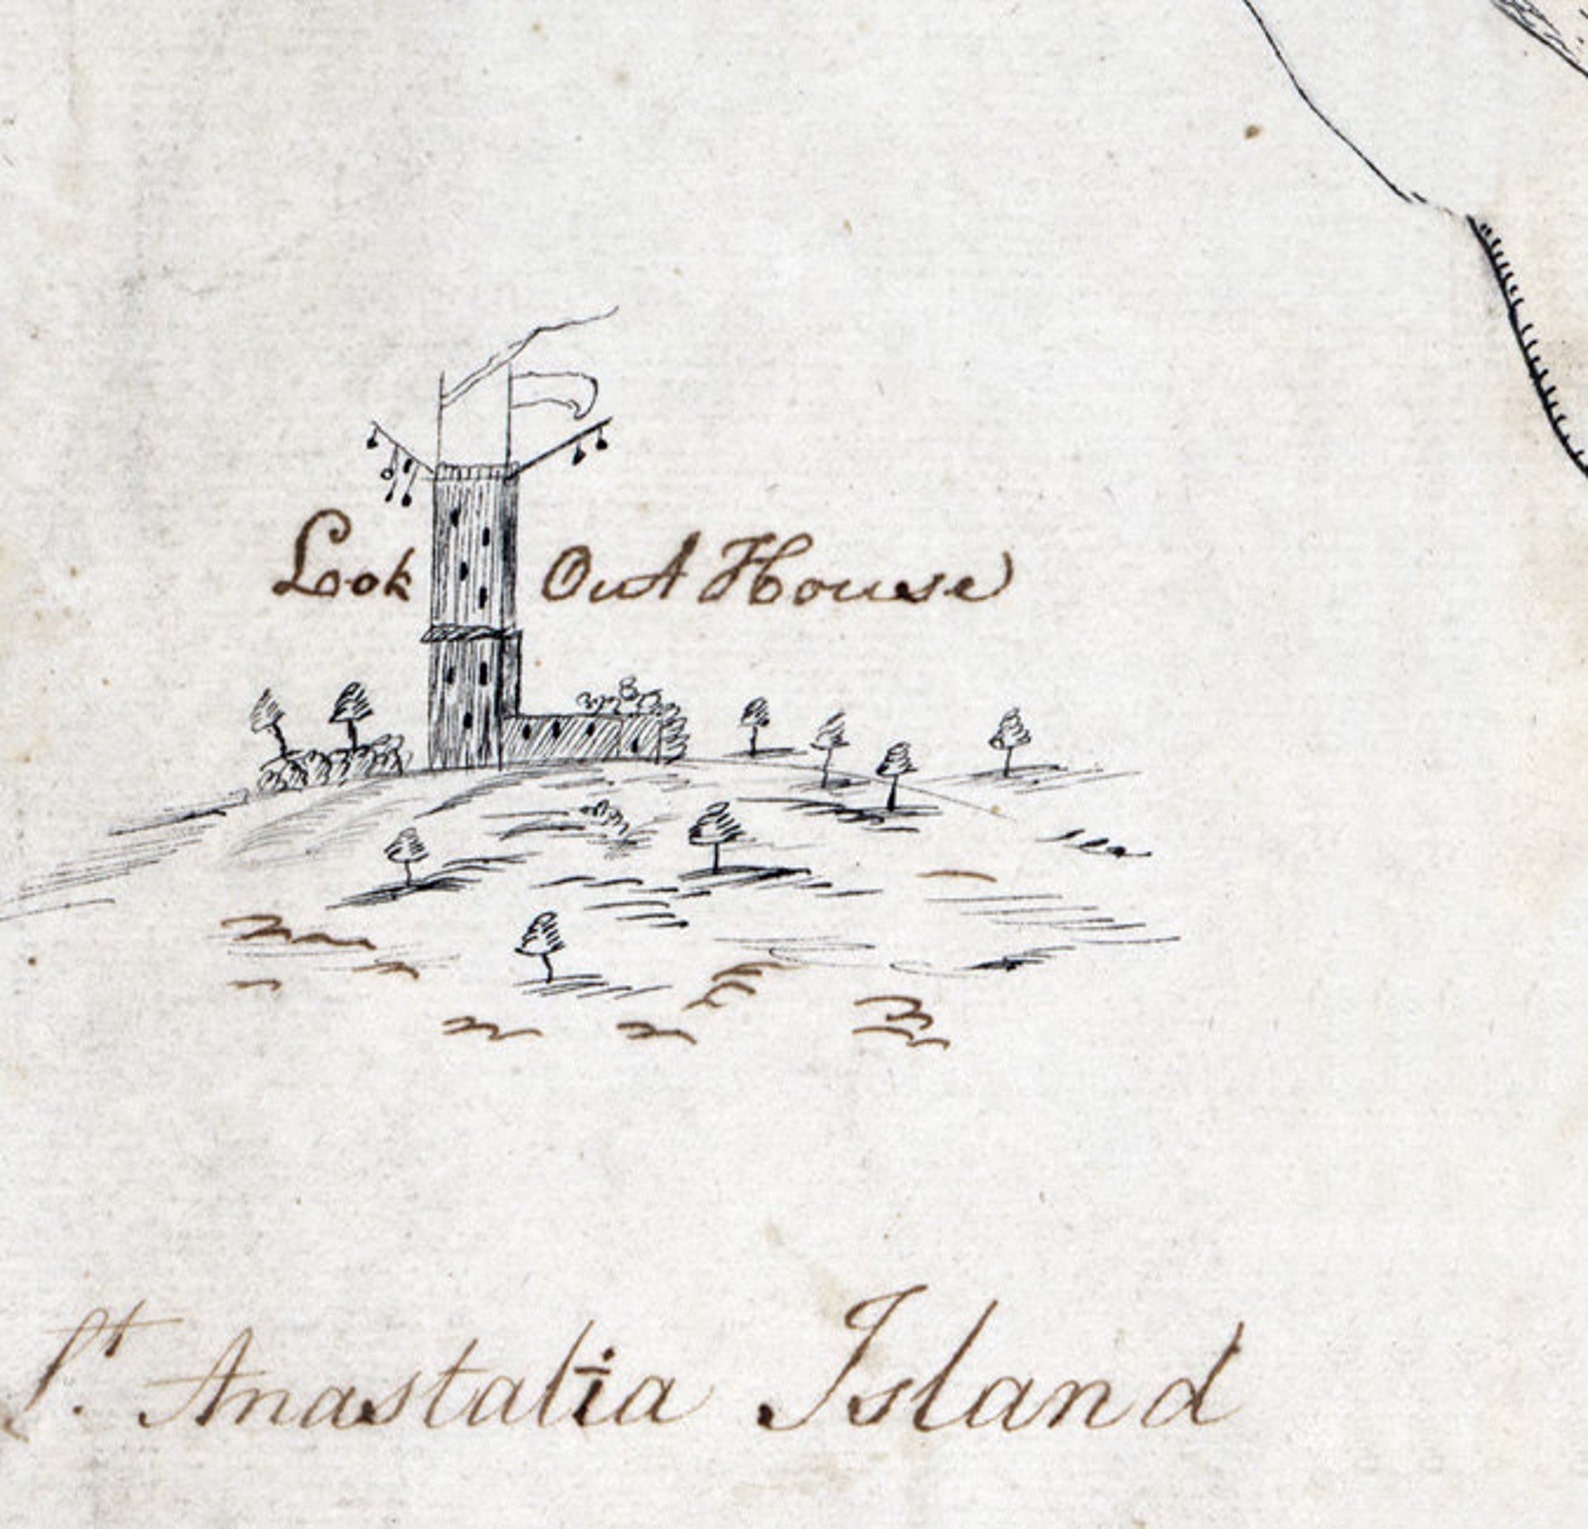 Look Out House
St. Anastatia Island